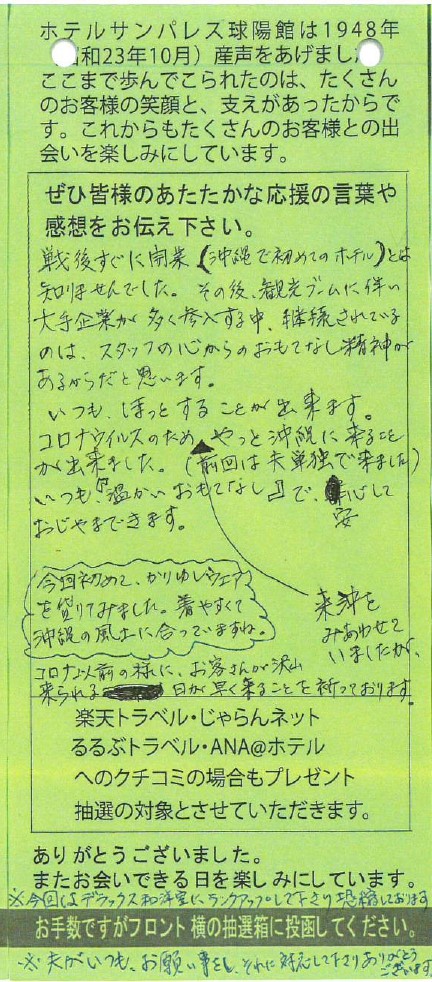 ホテルサンパレス球陽館は1948年
和23年10月）産声をあげまし
ここまで歩んでこられたのは、たくさん
のお客様の笑顔と、支えがあったからで
す。これからもたくさんのお客様との出
会いを楽しみにしています。
ぜひ皆様のあたたかな応援の言葉や
感想をお伝え下さい。
戦後すぐに開業（沖縄で初めてのホテル）とは
知りませんでした。その後、観光ブームに伴い
大手企業が多く参入する中、継続されている
のは、スタッフの心からのおもてなし精神が
あるからだと思います。
いつも、ほっとすることが出来ます。
コロナウイルスのため▲やっと沖縄に来ること
が出来ました。（前回は夫単独で来ました）
いつも『温かいおもてなし』で、安心して
おじゃまできます。
来沖を
みあわせて
いましたが、
今回初めて、かりゆしウェア
を借りてみました。着やすくて
沖縄の風土に合っていますね。
コロナ以前の様に、お客さんが沢山
来られる日が早く来ることを祈っております。
楽天トラベル・じゃらんネット
るるぶトラベル・ANA@ホテル
へのクチコミの場合もプレゼント
抽選の対象とさせていただきます。
ありがとうございました。
またお会いできる日を楽しみにしています。
※今回はデラックス和洋室にランクアップして下さり恐縮しております
お手数ですがフロント横の抽選箱に投函してください。
※夫がいつも、お願い事をし、それに対応して下さりありがとう
ございます